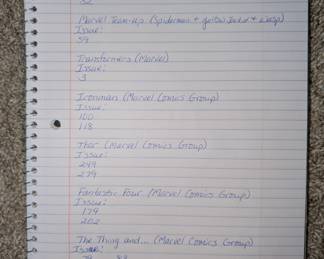 Marvel Team-up (Spiderman + Yellow Jacket + Wasp)
Issue:
59
Transformers (Marvel)
Issue:
3
Ironman (Marvel Comics Group)
Issue:
100
118
Thor (Marvel Comics Group)
Issue:
249
279
Fantastic Four (Marvel Comics Group)
Issue:
179
202
The Thing and... (Marvel Comics Group)
Issue: